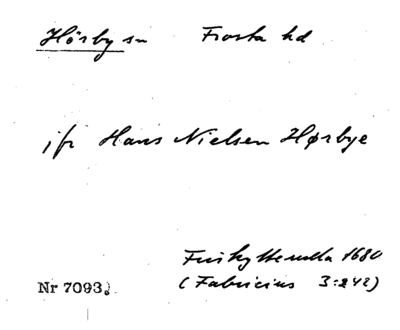 Hörby sn Frosta hd
jfr Hans Nielsen Hørbye
Friskytterulla 1680
Nr 7093. (Fabricius 3:242)